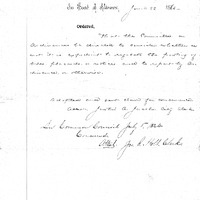 In Board of Aldermen, June 22 18
Ordered,
That the Committee on
Ordinances be directed to consider whether or
not it is expedient to regulate the posting of
bills, placards or notices and to report by
Ordinance or otherwise.
Adopted and sent down for concurrence
Attest
City Clerk
In Common Council July 1st
Concurred
Attest Clerk